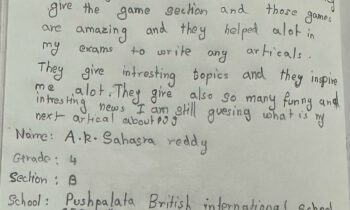 give the game section and those games
are amazing and they helped alot in
my exams to write any articals.
They give intresting topics and they inspire
me alot. They give also so many funny and
intresting news I am still guesing what is my
next artical about
Name: A.R. Sahasra reddy
Grade: 4
Section: B
School: Pushpalata British international School